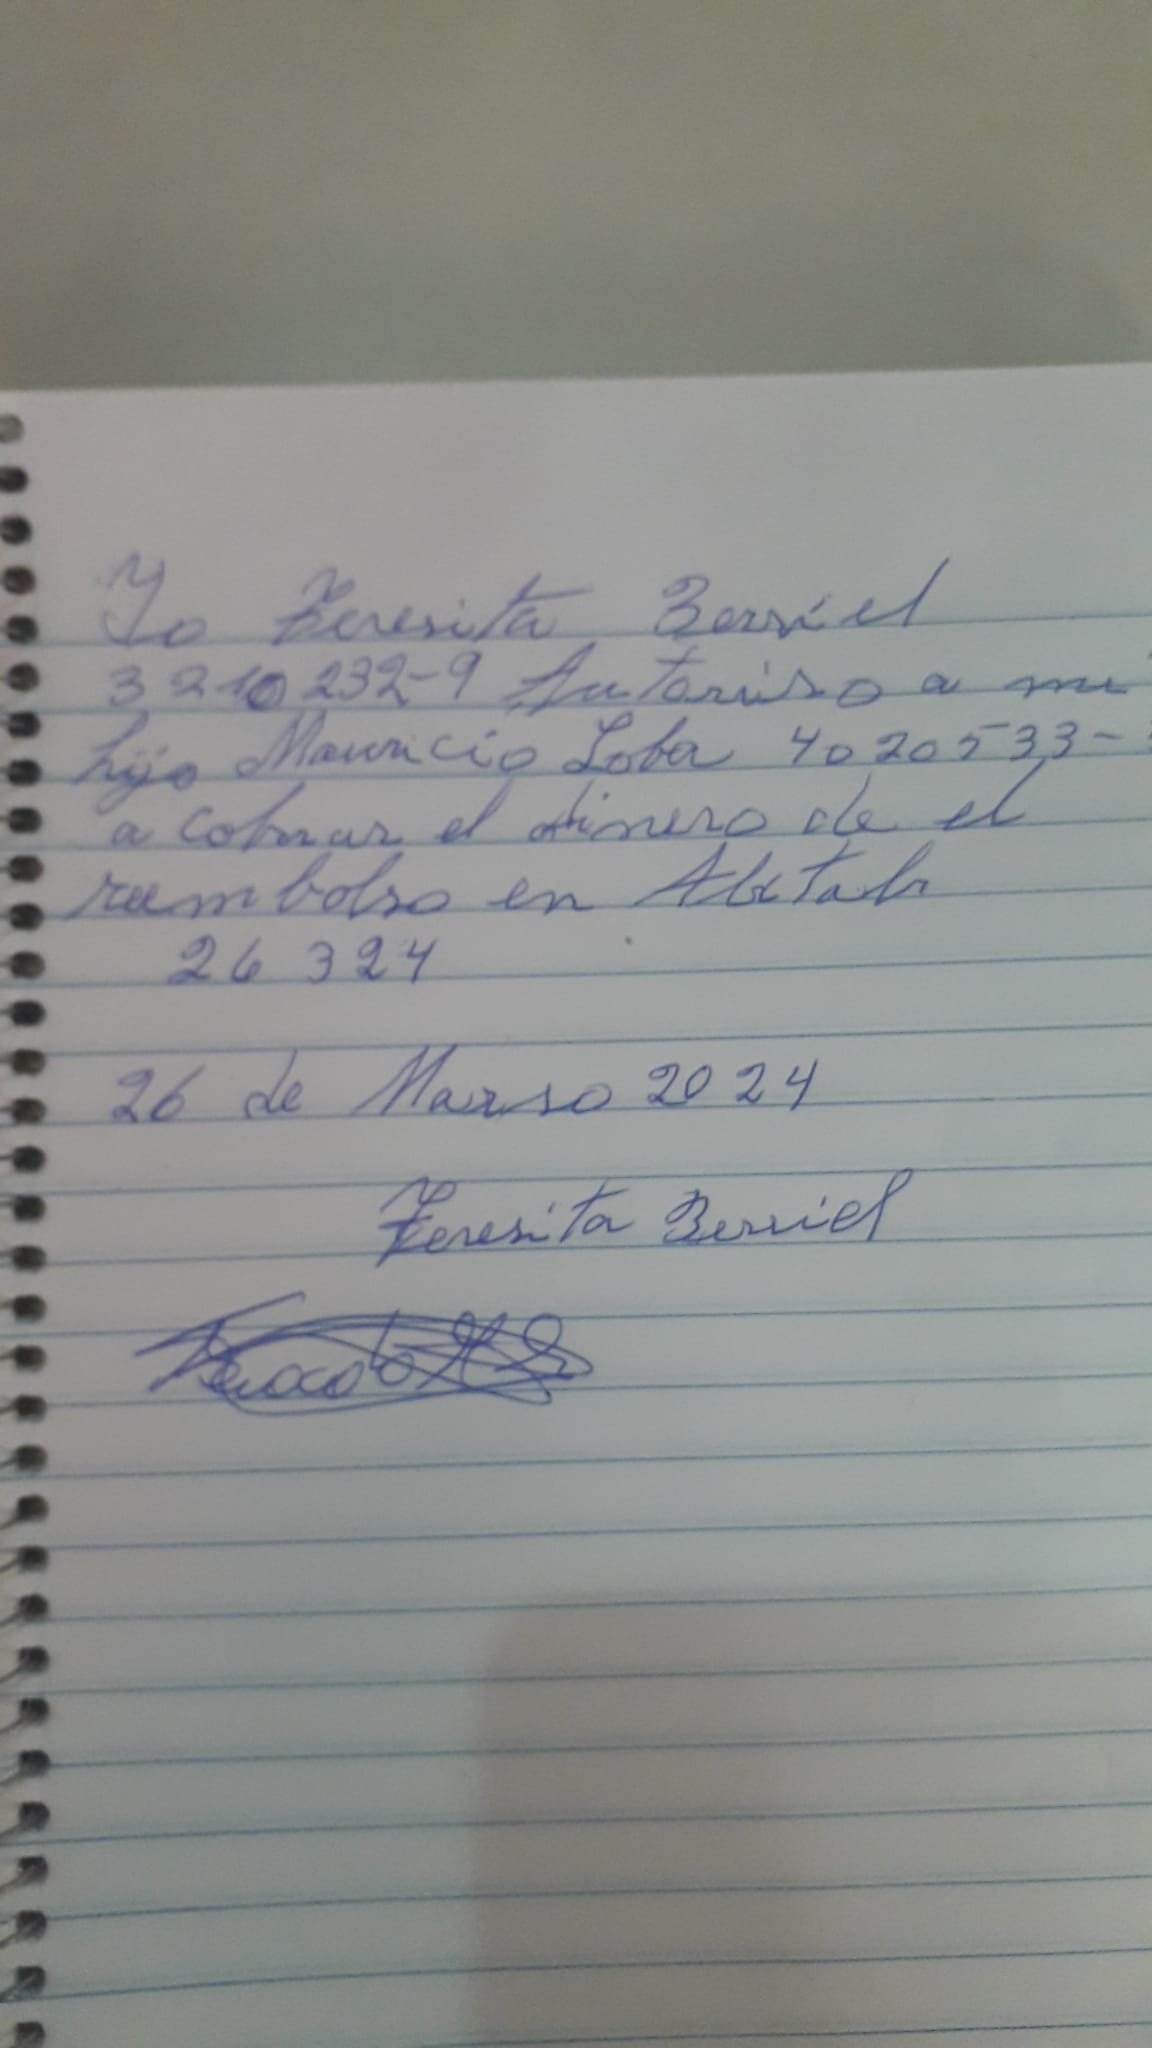 Yo Teresita Berriel
3210232-9 Autoriso a mi
hijo Mauricio Loba 4020533-
a cobrar el dinero de el
rumbolso en Abitab
26 3 24
26 de Marso 2024
Teresita Berriel